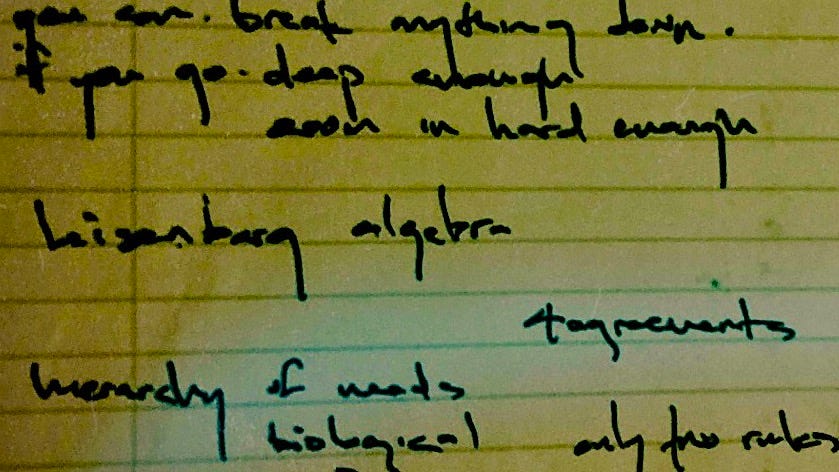 you can break anything down.
if you go deep enough
zoom in hard enough
heisenberg algebra
4 agreements
hierarchy of needs
biological only two rules